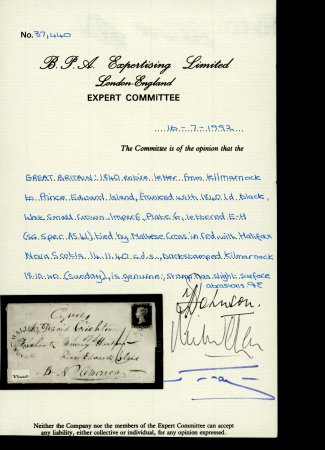 No. 37,440
B. P. A. Expertising Limited
London-England
EXPERT COMMITTEE
16 - 7 - 1992
The Committee is of the opinion that the
GREAT BRITAIN: 1840 entire letter from Kilmarnock
to Prince Edward Island, franked with 1840 1d. black,
wmk Small Crown, Imperf, Plate 6, lettered E-H
(SG Spec. AS41) tied by Maltese Cross in red with Halifax
Nova Scotia 14.11.40 c.d.s., backstamped Kilmarnock
18.10.40 (Sunday), is genuine, stamp has slight surface
abrasions
Johnson.
David Crichton
Merchant
Prince Edwards Island
B. N. America
Neither the Company nor the members of the Expert Committee can accept
any liability, either collective or individual, for any opinion expressed.